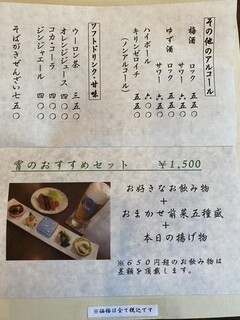 その他のアルコール
梅酒
ロック 五五〇
サワー 五五〇
ゆず酒
ロック 五五〇
サワー 五五〇
ハイボール 六〇〇
キリンゼロイチ 六〇〇
(ノンアルコール)
ソフトドリンク・甘味
ウーロン茶 三五〇
オレンジジュース 四〇〇
コカ・コーラ 四〇〇
ジンジャエール 四〇〇
そばがきぜんざい 七五〇
宵のおすすめセット ¥1,500
お好きなお飲み物
+
おまかせ前菜五種盛
+
本日の揚げ物
※650円超のお飲み物は
差額を頂戴します。
※価格は全て税込です